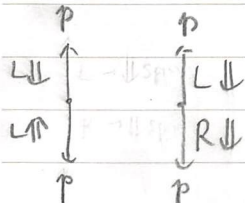 p p
L⇓ L⇓
L⇑ R⇓
p p